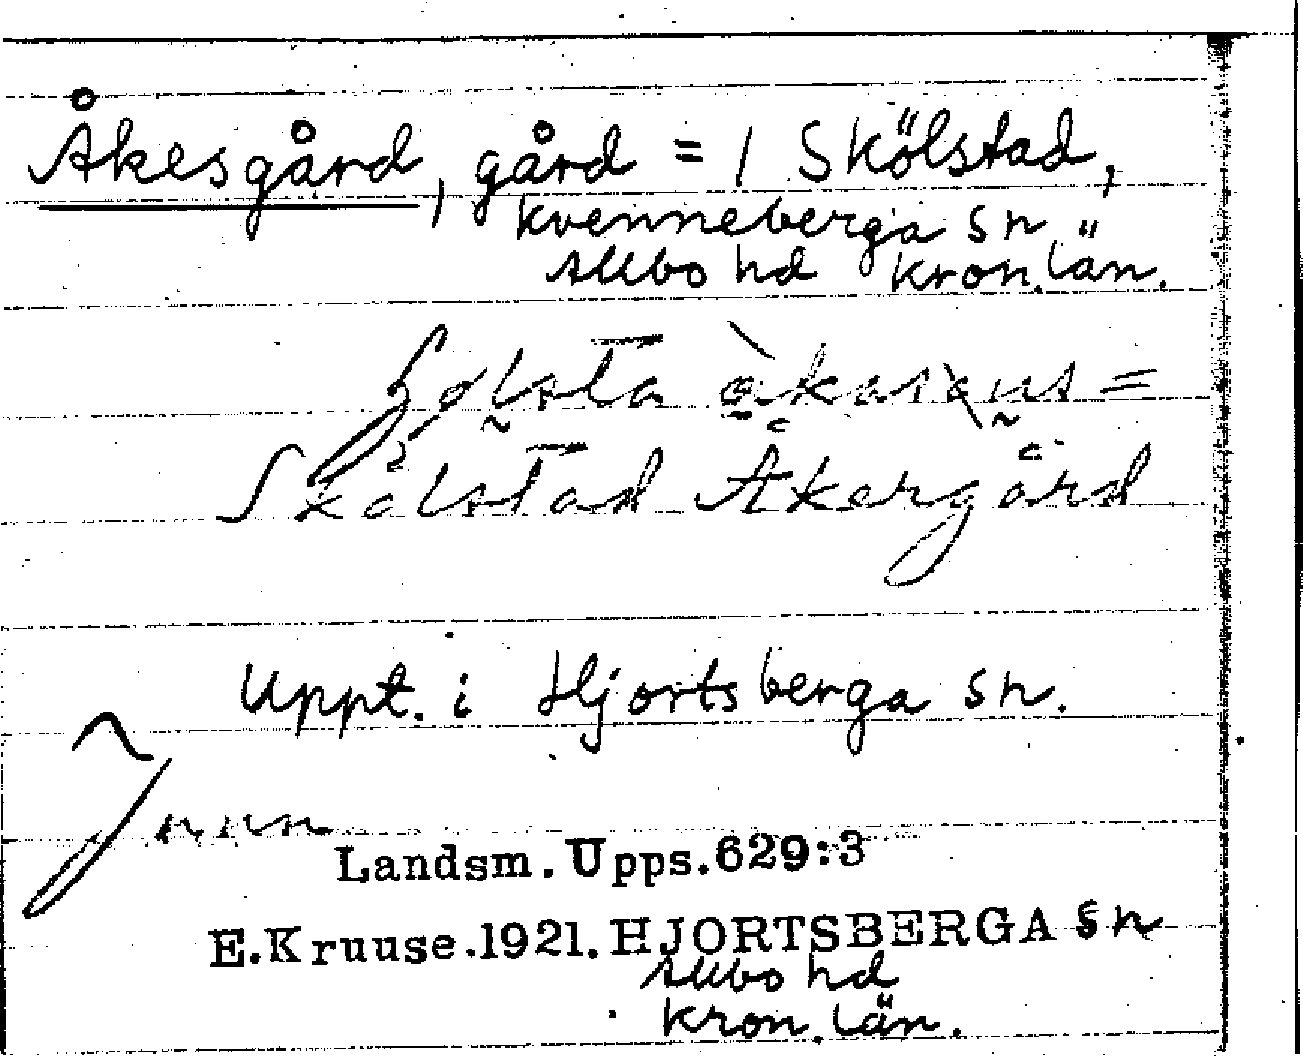 Åkesgård, gård = 1 Skölstad,
Kvenneberga sn
Allbo hd Kron. län.
Skölstad Åkergård
Uppt. i Hjortsberga sn.
Landsm. Upps. 629:3
E. Kruuse. 1921. HJORTSBERGA sn
Allbo hd
Kron. län.